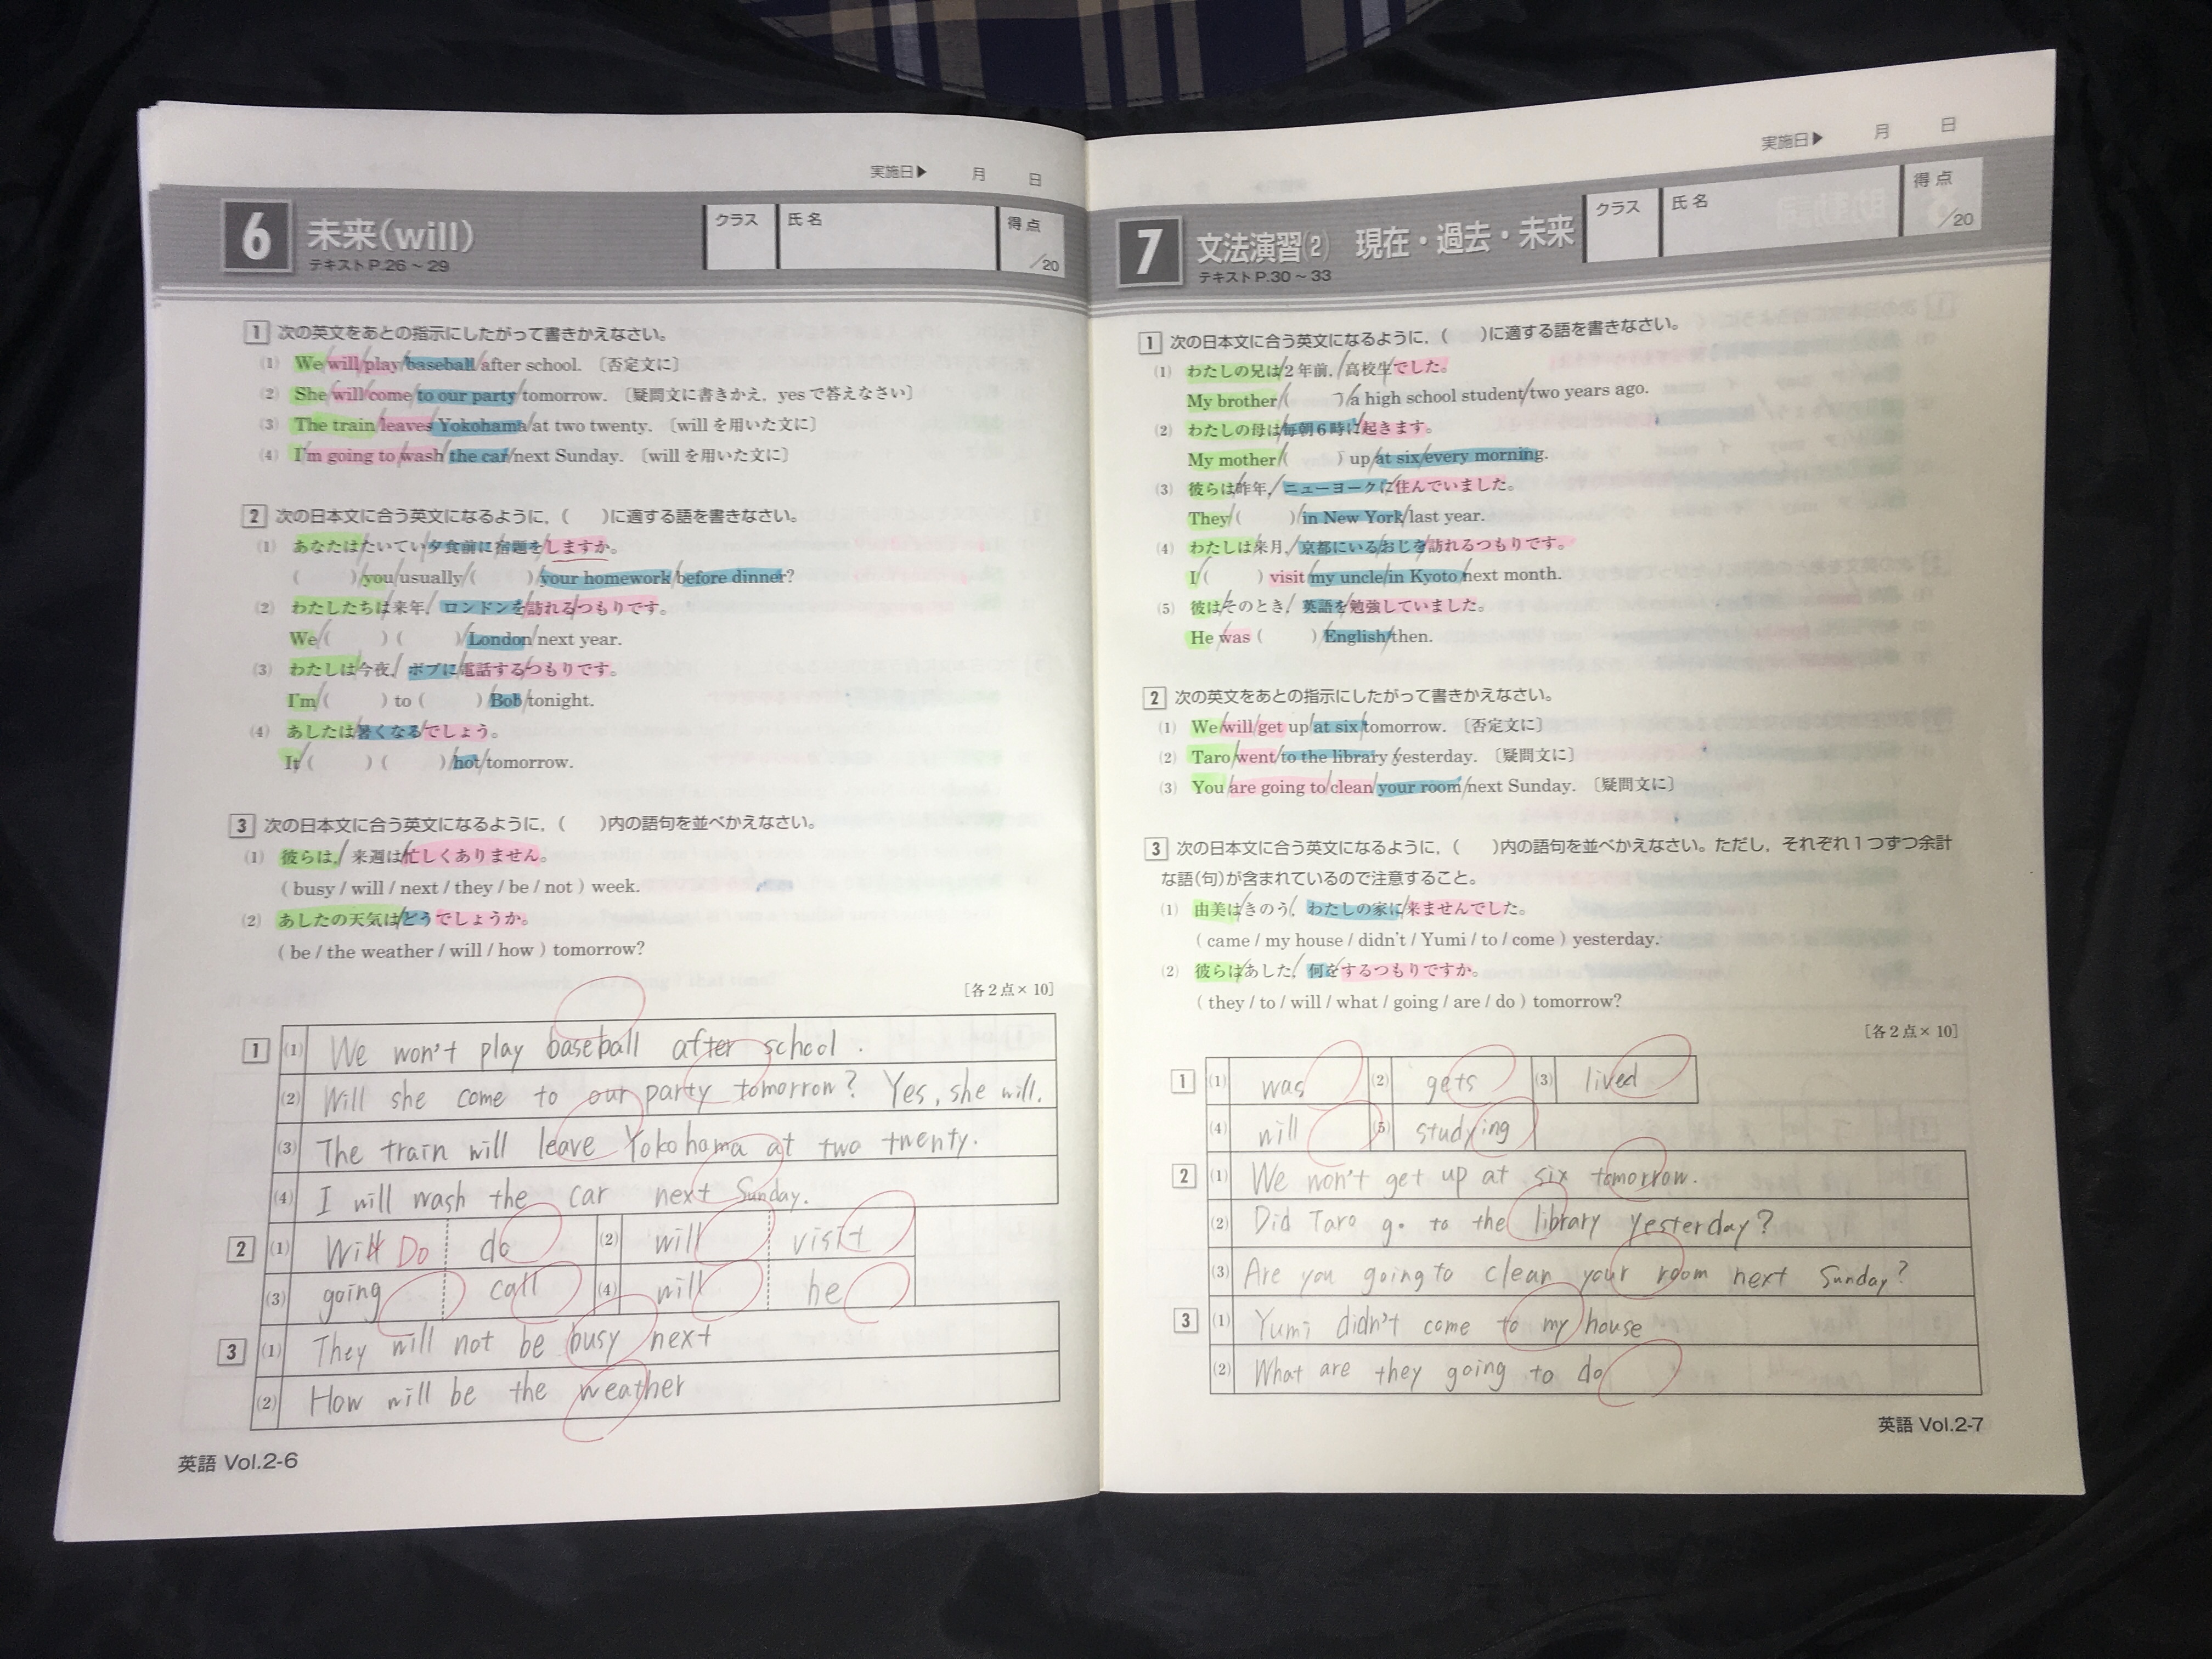 実施日▶ 月 日
6 未来(will)
テキストP.26～29
クラス 氏名 得点 /20
1 次の英文をあとの指示にしたがって書きかえなさい。
(1) We will play baseball after school. 〔否定文に〕
(2) She will come to our party tomorrow. 〔疑問文に書きかえ, yesで答えなさい〕
(3) The train leaves Yokohama at two twenty. 〔willを用いた文に〕
(4) I'm going to wash the car next Sunday. 〔willを用いた文に〕
2 次の日本文に合う英文になるように, ( )に適する語を書きなさい。
(1) あなたはたいてい夕食前に宿題をしますか。
( ) you usually ( ) your homework before dinner?
(2) わたしたちは来年, ロンドンを訪れるつもりです。
We ( ) ( ) London next year.
(3) わたしは今夜, ボブに電話するつもりです。
I'm ( ) to ( ) Bob tonight.
(4) あしたは暑くなるでしょう。
It ( ) ( ) hot tomorrow.
3 次の日本文に合う英文になるように, ( )内の語句を並べかえなさい。
(1) 彼らは, 来週は忙しくありません。
( busy / will / next / they / be / not ) week.
(2) あしたの天気はどうでしょうか。
( be / the weather / will / how ) tomorrow?
[各2点×10]
1 (1) We won't play baseball after school.
(2) Will she come to our party tomorrow? Yes, she will.
(3) The train will leave Yokohama at two twenty.
(4) I will wash the car next Sunday.
2 (1) Will Do do (2) will visit
(3) going call (4) will be
3 (1) They will not be busy next
(2) How will be the weather
英語 Vol.2-6
実施日▶ 月 日
7 文法演習(2) 現在・過去・未来
テキストP.30～33
クラス 氏名 得点 /20
1 次の日本文に合う英文になるように, ( )に適する語を書きなさい。
(1) わたしの兄は2年前, 高校生でした。
My brother ( ) a high school student two years ago.
(2) わたしの母は毎朝6時に起きます。
My mother ( ) up at six every morning.
(3) 彼らは昨年, ニューヨークに住んでいました。
They ( ) in New York last year.
(4) わたしは来月, 京都にいるおじを訪れるつもりです。
I ( ) visit my uncle in Kyoto next month.
(5) 彼はそのとき, 英語を勉強していました。
He was ( ) English then.
2 次の英文をあとの指示にしたがって書きかえなさい。
(1) We will get up at six tomorrow. 〔否定文に〕
(2) Taro went to the library yesterday. 〔疑問文に〕
(3) You are going to clean your room next Sunday. 〔疑問文に〕
3 次の日本文に合う英文になるように, ( )内の語句を並べかえなさい。ただし, それぞれ1つずつ余計
な語(句)が含まれているので注意すること。
(1) 由美はきのう, わたしの家に来ませんでした。
( came / my house / didn't / Yumi / to / come ) yesterday.
(2) 彼らはあした, 何をするつもりですか。
( they / to / will / what / going / are / do ) tomorrow?
[各2点×10]
1 (1) was (2) gets (3) lived
(4) will (5) studying
2 (1) We won't get up at six tomorrow.
(2) Did Taro go to the library yesterday?
(3) Are you going to clean your room next Sunday?
3 (1) Yumi didn't come to my house
(2) What are they going to do
英語 Vol.2-7